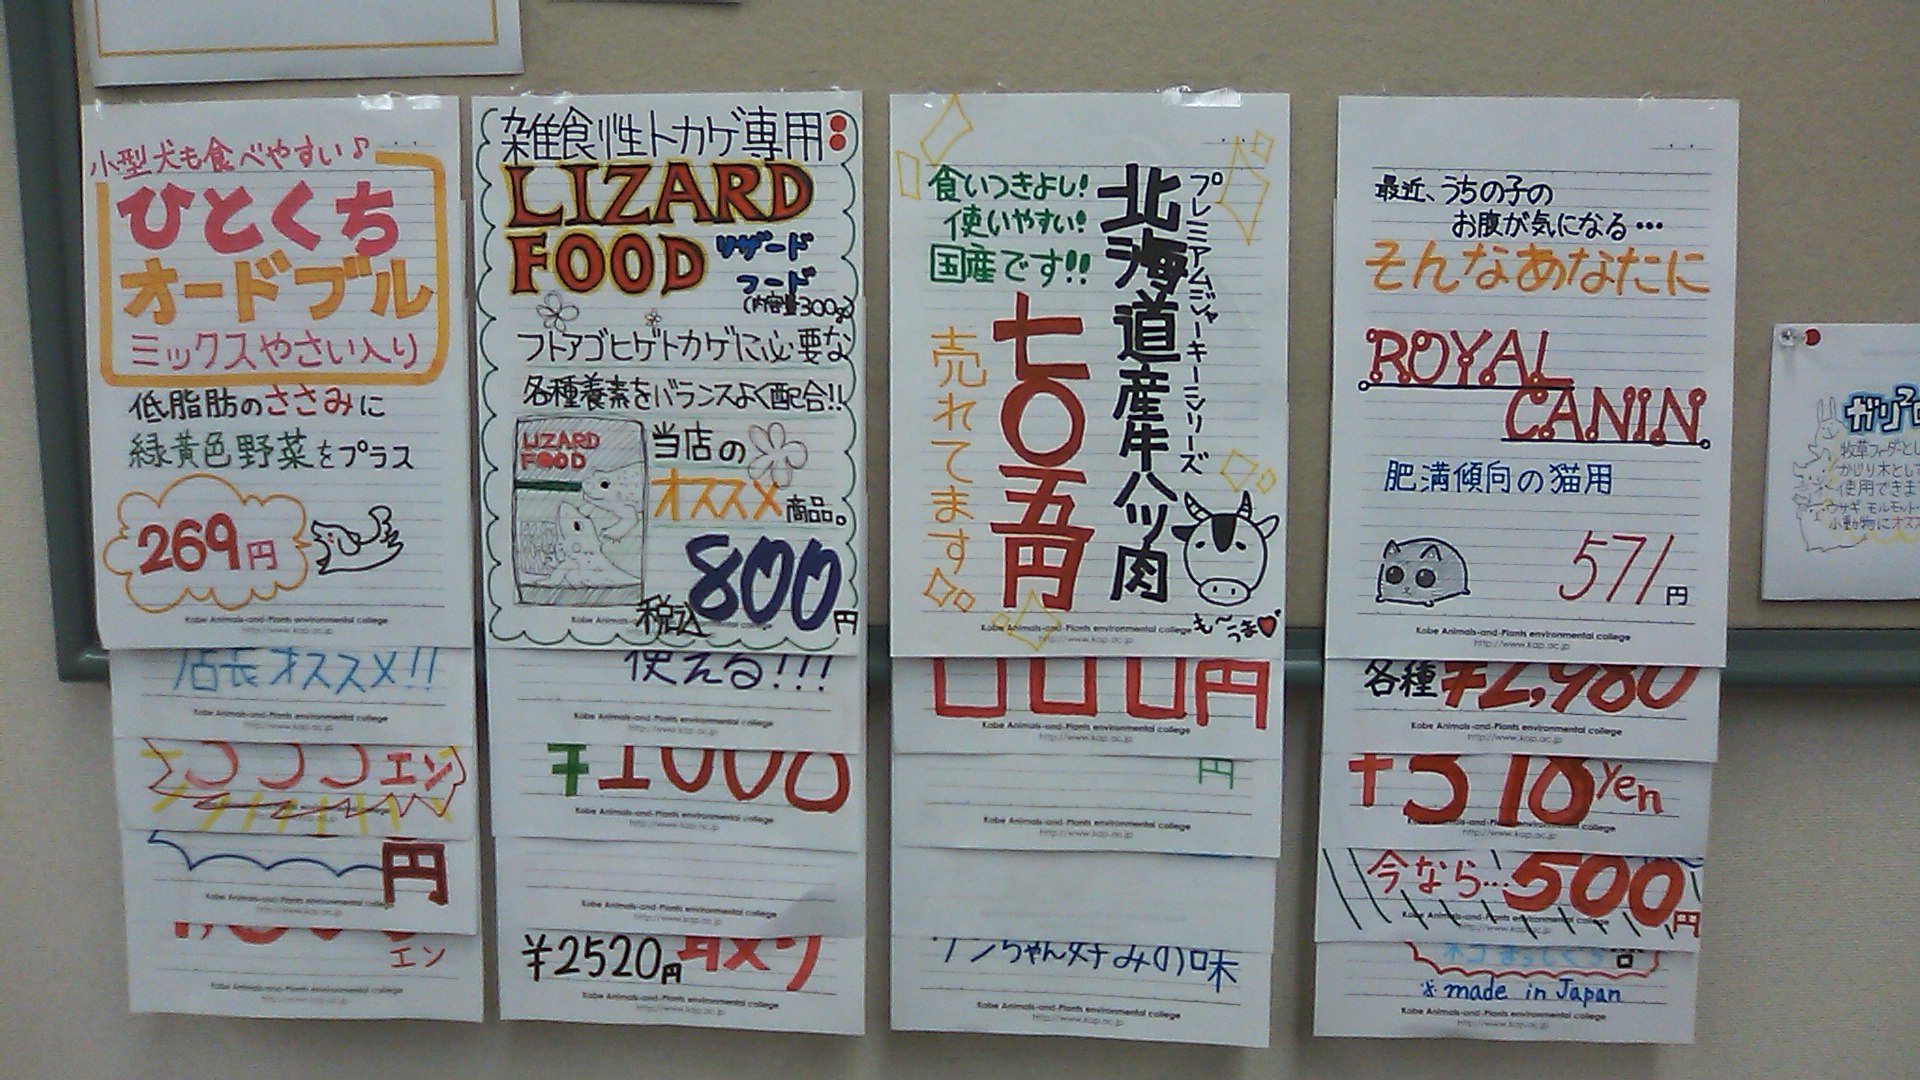 小型犬も食べやすい♪
ひとくち
オードブル
ミックスやさい入り
低脂肪のささみに
緑黄色野菜をプラス
269円
Kobe Animals-and-Plants environmental college
http://www.kap.ac.jp
店長オススメ!!
Kobe Animals-and-Plants environmental college
エン
円
Kobe Animals-and-Plants environmental college
エン
Kobe Animals-and-Plants environmental college
雑食性トカゲ専用
LIZARD
FOOD
リザード
フード
(内容量300g)
フトアゴヒゲトカゲに必要な
各種養素をバランスよく配合!!
LIZARD
FOOD
当店の
オススメ商品。
税込800円
environmental college
http://www.kap.ac.jp
使える!!!
Kobe Animals-and-Plants environmental college
http://www.kap.ac.jp
¥1000
Kobe Animals-and-Plants environmental college
http://www.kap.ac.jp
Kobe Animals-and-Plants environmental college
http://www.kap.ac.jp
¥2520円
Kobe Animals-and-Plants environmental college
http://www.kap.ac.jp
プレミアムジャーキーシリーズ
北海道産牛ハツ肉
食いつきよし!
使いやすい!
国産です!!
七〇五円
売れてます
も〜うま
Kobe Animals-and-Plants environmental college
http://www.kap.ac.jp
円
Kobe Animals-and-Plants environmental college
http://www.kap.ac.jp
円
Kobe Animals-and-Plants environmental college
http://www.kap.ac.jp
ワンちゃん好みの味
Kobe Animals-and-Plants environmental college
http://www.kap.ac.jp
最近、うちの子の
お腹が気になる…
そんなあなたに
ROYAL
CANIN
肥満傾向の猫用
571円
Kobe Animals-and-Plants environmental college
http://www.kap.ac.jp
各種¥2,980
Kobe Animals-and-Plants environmental college
http://www.kap.ac.jp
yen
http://www.kap.ac.jp
今なら…500円
Kobe Animals-and-Plants environmental college
made in Japan
Kobe Animals-and-Plants environmental college
http://www.kap.ac.jp
牧草フィーダーとし
かじり木として
使用できま
ウサギ モルモット
小動物にオス